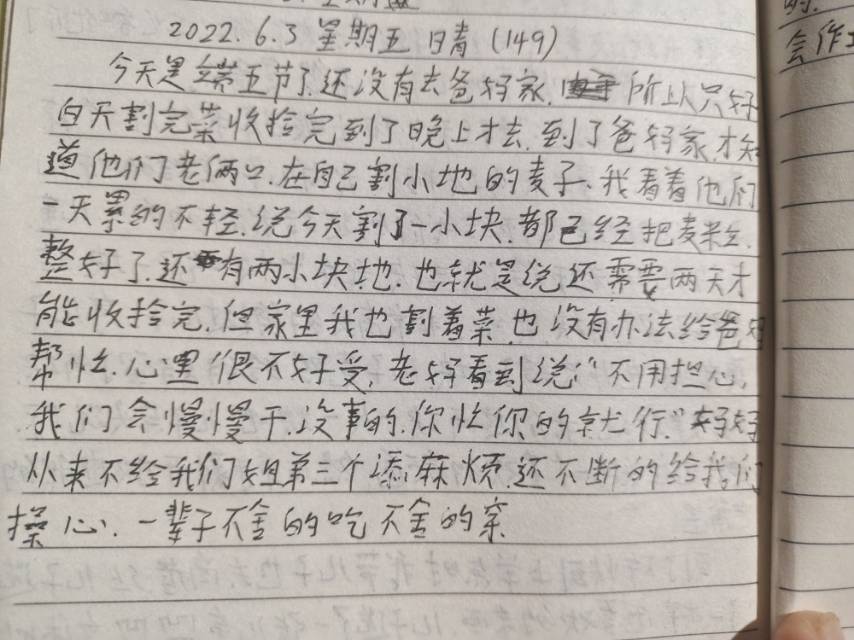 2022.6.3 星期五 日青 (149)
今天是端五节了.还没有去爸妈家. 所以只好
白天割完菜收拾完到了晚上才去.到了爸妈家.才知
道他们老俩口.在自己割小地的麦子、我看着他们
一天累的不轻.说今天割了一小块.都已经把麦粒.
整好了.还有两小块地.也就是说还需要两天才
能收拾完.但家里我也割着菜.也没有办法给爸妈
帮忙.心里很不好受.老妈看到说:"不用担心,
我们会慢慢干.没事的.你忙你的就行."妈妈
从来不给我们姐弟三个添麻烦.还不断的给我们
操心.一辈子不舍的吃不舍的穿
的.
会作